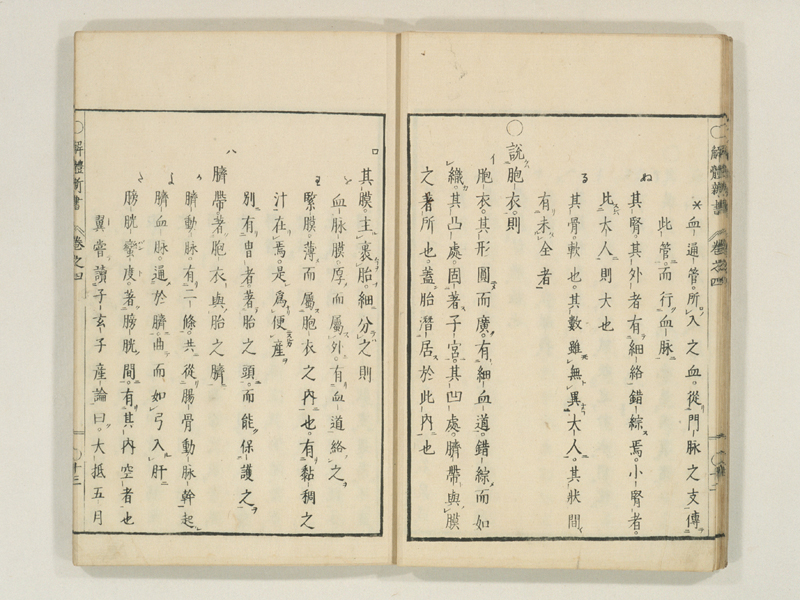 ＊血道管。所入之血。從門脉之支傳
此管。而行血脉
ぬ其腎其外者有細絡錯綜焉。小腎者。
此大人則大也
る其骨軟也。其數雖無異大人。其狀間
有未全者
〇說胞衣。則
イ胞衣。其形圓而廣。有細血道。錯綜而如
織。其凸處。固著子宮。其凹處。臍帶與膜
之著所也。蓋胎潛居於此內也
ロ其膜主裹胎。細分之則
血脉膜厚。而屬外。有血道絡之
緊膜薄而屬胞衣之內也。有黏稠之
汁在焉。是爲便産
別有冑者著胎之頭。而能保護之
ハ臍帶著胞衣與胎之臍
臍動脉。有二條。共從腸骨動脉幹起
よ臍血脉。通於臍。曲而如弓入肝
た膀胱蠻度。著膀胱間。有其內空者也
翼嘗讀子玄子産論曰。大抵五月
〇解體新書 卷之四
十三